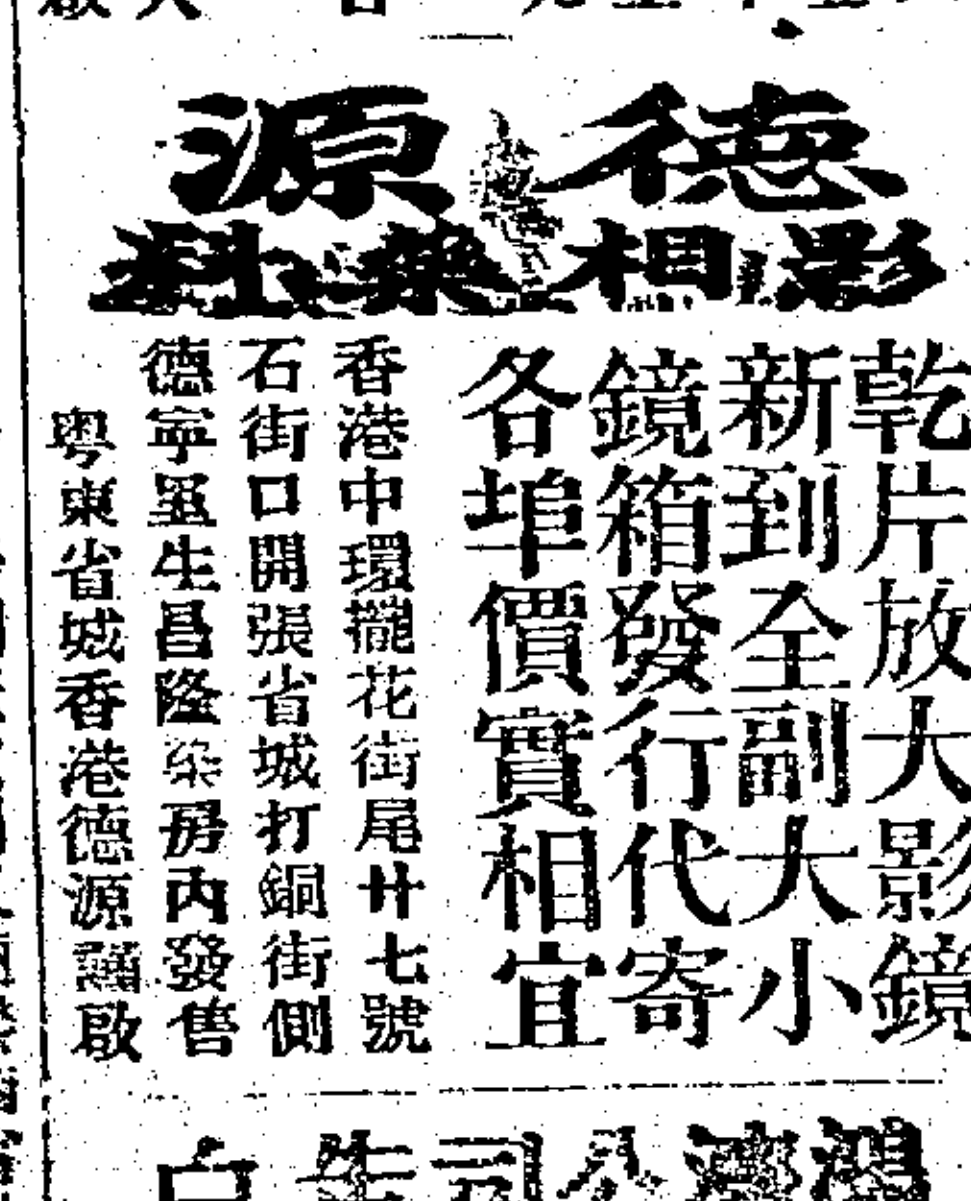 德源
影相藥料
乾片放大影鏡
新到全副大小
鏡箱發行代寄
各埠價實相宜
香港中環擺花街尾廿七號
石街口開張省城打銅街側
德寧里生昌隆染房內發售
粵東省城香港德源謹啟
公司告白